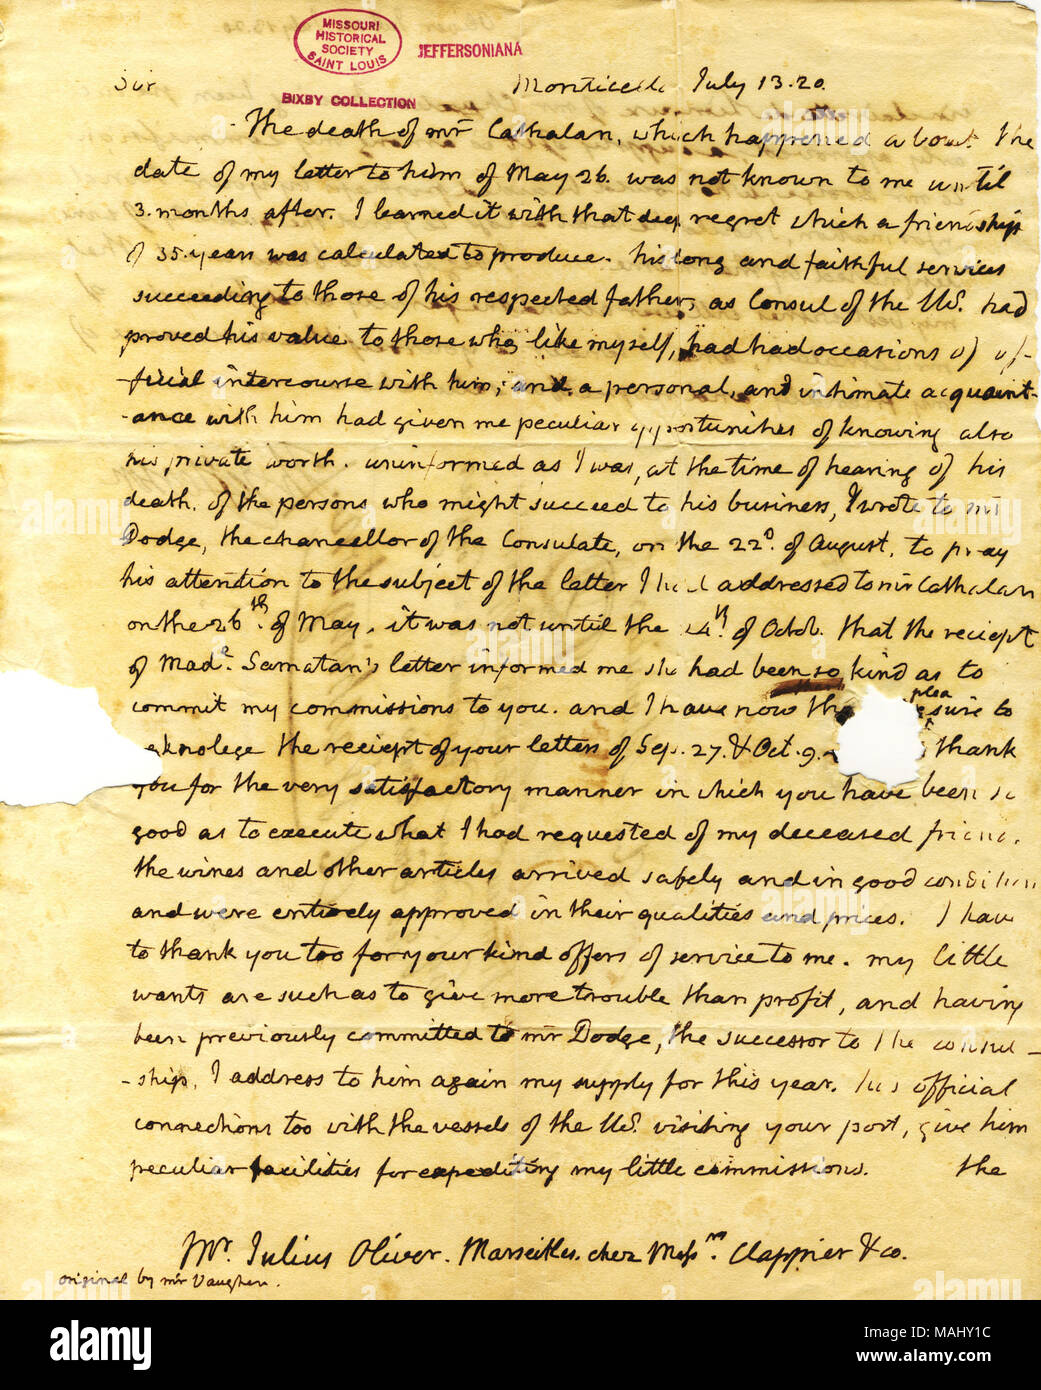 MISSOURI
HISTORICAL
SOCIETY
SAINT LOUIS
JEFFERSONIANA
Sir Monticello July 13. 20.
BIXBY COLLECTION
The death of mr Cathalan, which happened about the
date of my letter to him of May 26. was not known to me until
3. months after. I learned it with that deep regret which a friendship
of 35. years was calculated to produce. his long and faithful services
succeeding to those of his respected father, as Consul of the US. had
proved his value to those who, like myself, had had occasions of of-
-ficial intercourse with him, and a personal, and intimate acquaint-
-ance with him had given me peculiar opportunities of knowing also
his private worth. uninformed as I was, at the time of hearing of his
death, of the persons who might succeed to his business, I wrote to mr
Dodge, the chancellor of the Consulate, on the 22d. of August, to pray
his attention to the subject of the letter I had addressed to mr Cathalan
on the 26th. of May. it was not until the 14th. of Octob. that the reciept
of Made. Samatan's letter informed me she had been so kind as to
commit my commissions to you. and I have now the pleasure to
aknolege the reciept of your letters of Sep. 27. & Oct. 9. thank
you for the very satisfactory manner in which you have been so
good as to execute what I had requested of my deceased friend.
the wines and other articles arrived safely and in good condition
and were entirely approved in their qualities and prices. I have
to thank you too for your kind offers of service to me. my little
wants are such as to give more trouble than profit, and having
been previously committed to mr Dodge, the successor to the consul-
-ship, I address to him again my supply for this year. his official
connections too with the vessels of the US. visiting your port, give him
peculiar facilities for expediting my little commissions. the
Mr. Julius Oliver. Marseilles. chez Messrs. Clappier & co.
original by mr Vaughan.
alamy
Image ID: MAHY1C
www.alamy.com